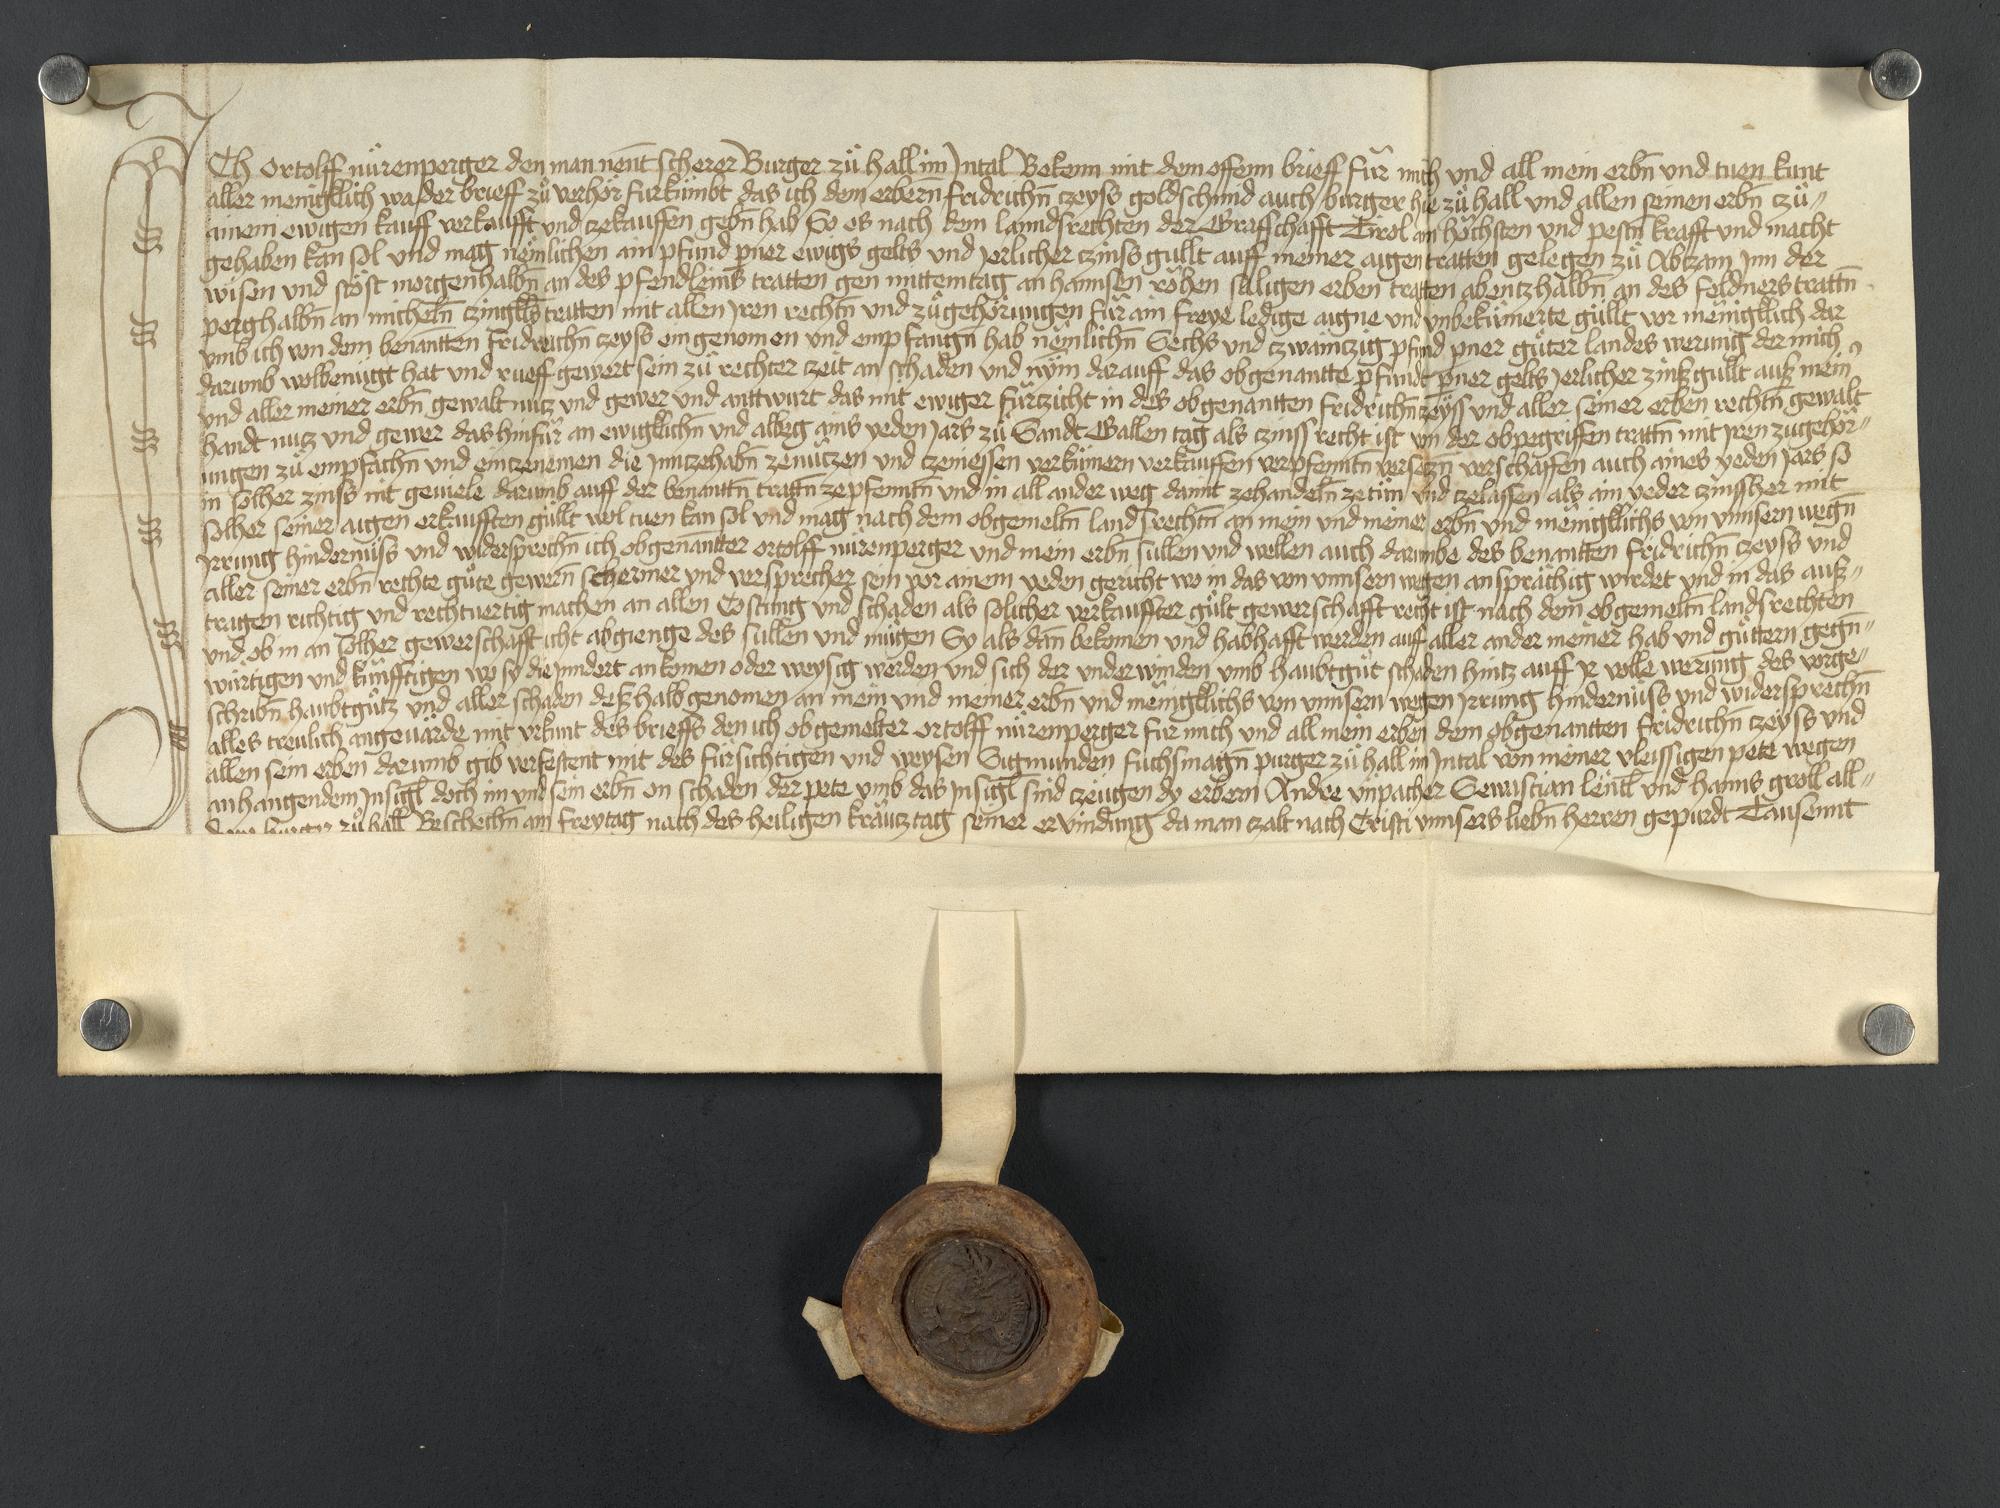 Ich Ortolff nürenperger den man nent scherer Burger zů hall im Jntal Bekenn mit dem offenn brieff für mich und all mein erbn̄ und tuen kunt
aller menigklich wa der brieff zů verhör fürkümbt das ich dem erbern fridrichn̄ czeyss goldschmid auch burger hie zů hall und allen seinen erbn̄ czů
ainem ewigen kauff verkaufft und czekauffen gebn̄ hab So es nach dem lanndsrechten der Graffschafft Tirol am höchsten und pestn̄ krafft und macht
gehaben kan sol und mag nemlichen ain pfund p̄ner ewigs gelts und Jerlicher czinss gullt auff meiner aigen tratten gelegen zů Abczam Jnn der
wisen und stöst morgenhalbn̄ an des pfendleins tratten gen mittemtag an hannsen röhen säligen erben tratten abentzhalbn̄ an des feldners trattn̄
perghalbn̄ an micheln̄ czingkls̄ tratten mit allen Jren rechtn̄ und zůgehörungen für ain freye ledige aigne und unbekümerte güllt vor menigklich dar
umb ich von dem benantten Fridreichn̄ czeyss eingenomen und empfangn̄ hab nemlichn̄ Sechs und czwaintzig pfund p̄ner gůter landes werung der mich
darumb wolbenügt hat und rueff gewert sein zů rechter czeit an schaden und nym darauff das obgenantte pfundt p̄ner gelts Jerlicher zinß gullt auß mein
und aller meiner erbn̄ gewalt nutz und gewer und anttwurt das mit ewiger fürtzicht in des obgenantten fridrichn̄ czeyss und aller seiner erben rechtn̄ gewalt
handt nutz und gewer das hinfür an ewigklichn̄ und albeg ains yeden Jars zů Sandt Gallen tag als czinss recht ist von der obpegriffen trattn̄ mit Jren zugehör
ungen zů empfachn̄ und einczenemen die Jnnczehabn̄ zenützen und czeniessen verkümern verkauffen verpfenntn̄ verseczn̄ verschaffen auch aines yeden Jars so
in solher zinss nit geviele darumb auff der benanttn̄ trattn̄ zepfenntn̄ und in all ander weg damit zehandeln̄ zetün und czelassen als ain yeder czinssher mit
solher seiner aigen erkaufften güllt wol tuen kan sol und mag nach dem obgemeltn̄ landsrechtn̄ an mein und meiner erbn̄ und menigklichs von unnsern wegn̄
Jrrung hindernüss und widersprechn̄ ich obgenantter ortolff nürenperger und mein erbn̄ sullen und wellen auch darumbe des benantten fridrichn̄ czeyss und
aller seiner erbn̄ rechte gůte gewern̄ schermer und versprecher sein vor ainem yeden gericht wo in das von unnsern wegen ansprächig wirdet und in das auß
tragen richtig und rechtvertig machen an allen Costung und schaden als solicher verkauffter gült gewerschafft recht ist nach dem obgemeltn̄ landsrechten
und ob in an solher gewerschafft icht abgienge des sullen und mügen Sy als dan̄ bekomen und habhafft werden auff aller ander meiner hab und güttern gegn̄
würtigen und künfftigen wo sy die Jnndert ankomen oder weysig werden und sich der underwinden umb haubtgůt schaden hintz auff Jr volle werung des vorge
schribn̄ haubtgůtz und aller schaden deßhalb genomen an mein und meiner erbn̄ und menigklichs von unnsern wegen Jrrung hindernüss und widersprechn̄
alles treulich angevärde mit urkunt des brieffs den ich obgemelter ortolff nürenperger für mich und all mein erben dem obgenantten fridrichn̄ czeyss und
allen sein erben darumb gib verfestent mit des fürsichtigen und weysen Sigmunden füchsmagn̄ purger zů hall im Jntal von meiner vleissigen pete wegen
anhangendem Jnsigl̄ doch im und sein erbn̄ on schaden der pete umb das Jnsigl̄ sind czeugen dy erbern Andre unpacher Sewastian lentl̄ und hanns groll all
burger zů hall Beschechn̄ am freytag nach des heiligen kräucz tag seiner ervindung da man czalt nach Cristi unnsers liebn̄ herren gepurdt Tausennt